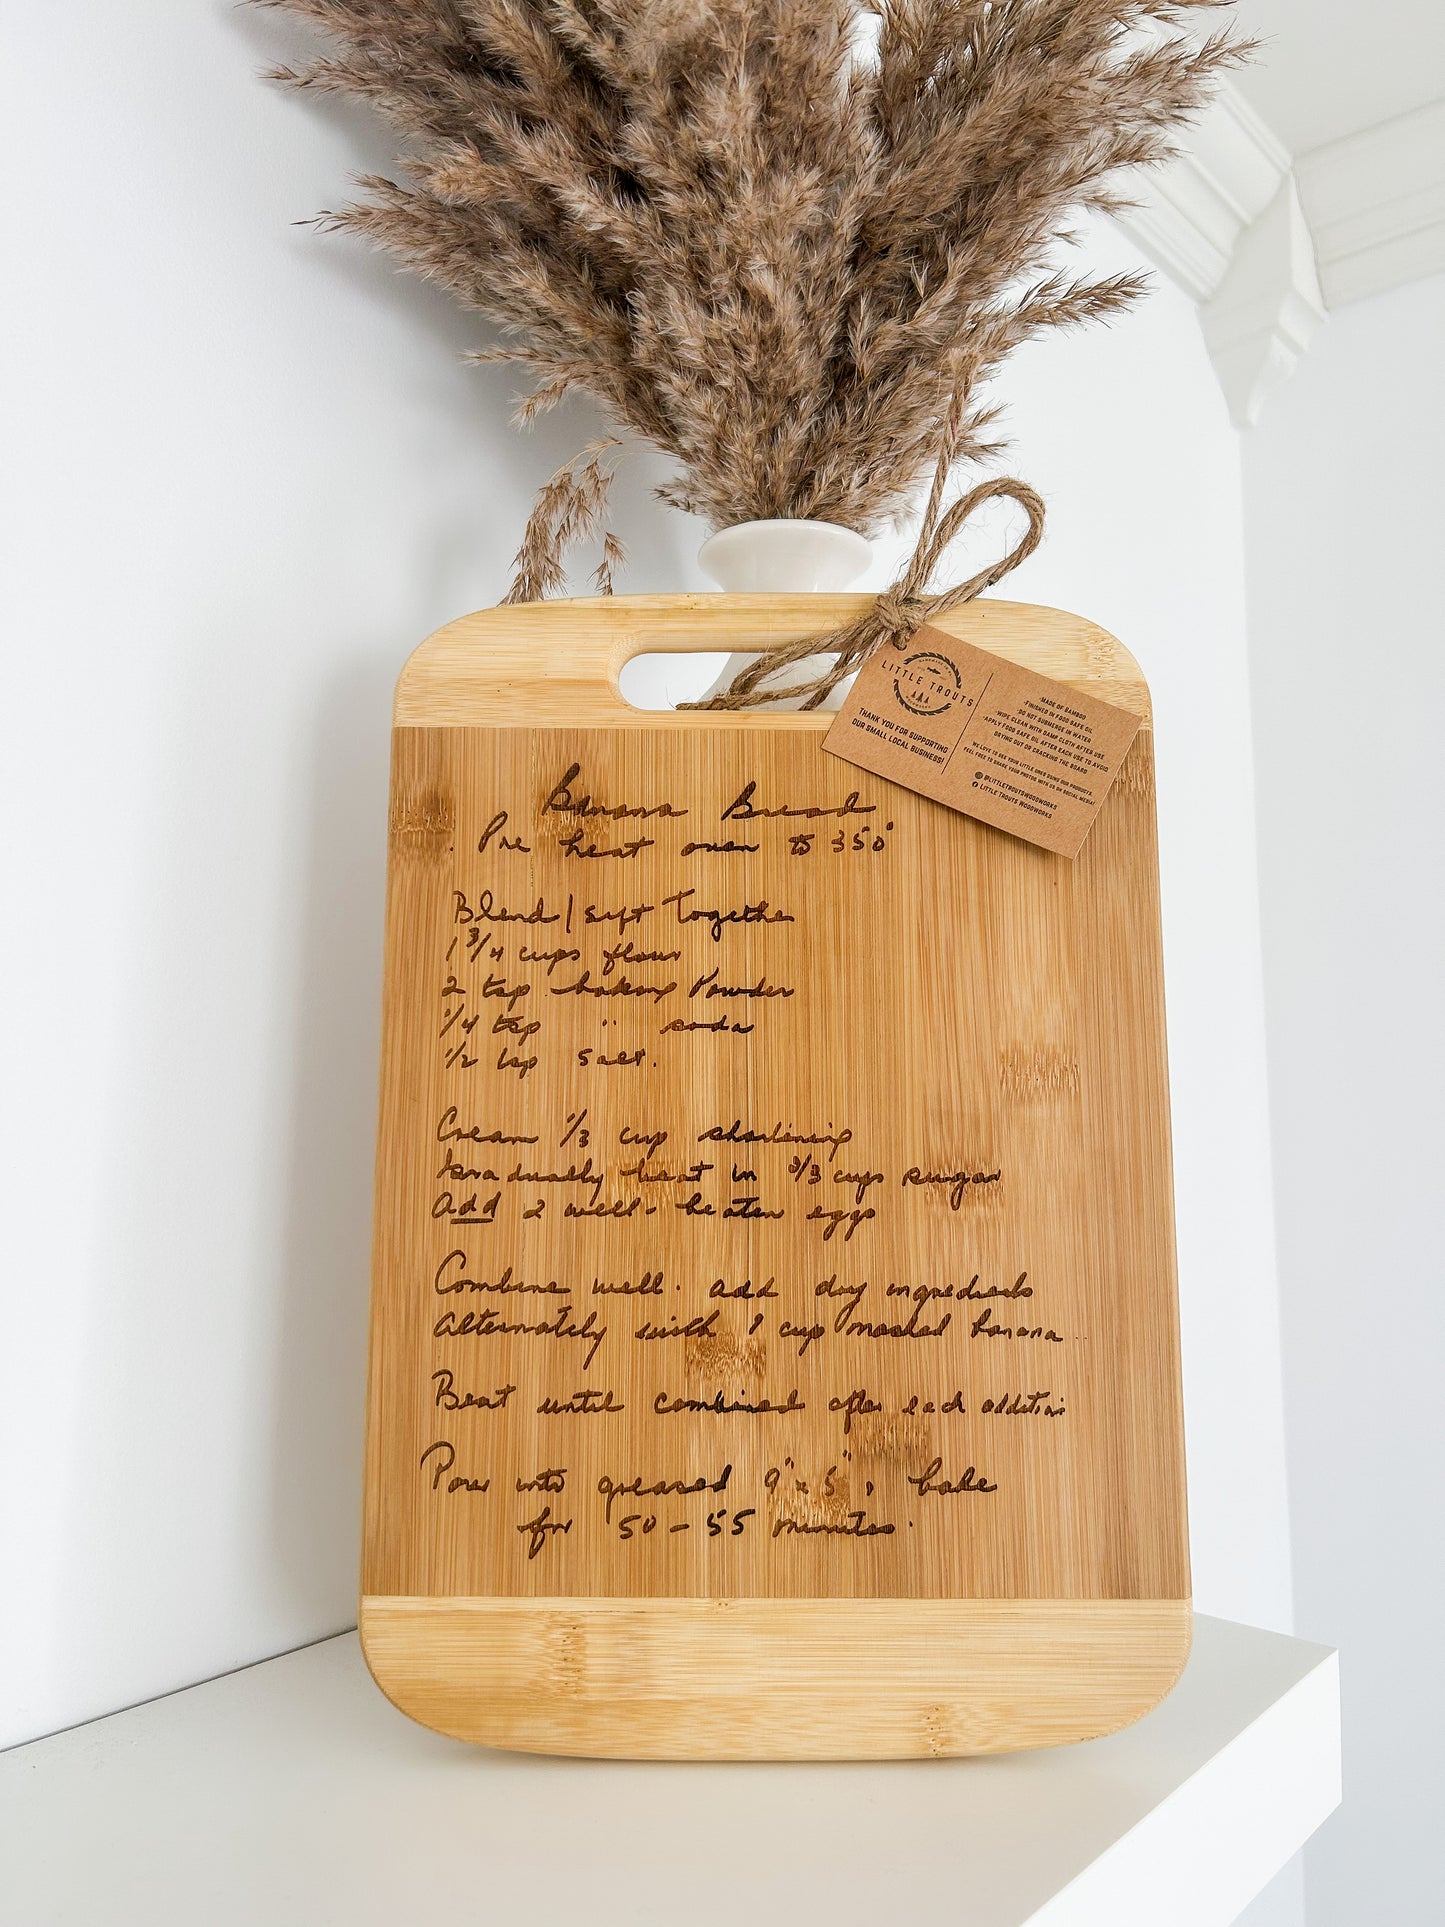 Banana Bread
. Pre heat oven to 350°
Blend / sift Together
1 3/4 cups flour
2 tsp baking Powder
1/4 tsp " soda
1/2 tsp salt.
Cream 1/3 cup shortening
Gradually beat in 2/3 cups sugar
Add 2 well-beaten eggs
Combine well. add dry ingredients
Alternately with 1 cup mashed banana
Beat until combined after each addition
Pour into greased 9" x 5", bake
for 50-55 minutes.
LITTLE TROUTS
WOODWORKS
THANK YOU FOR SUPPORTING
OUR SMALL LOCAL BUSINESS!
·MADE OF BAMBOO
·FINISHED IN FOOD SAFE OIL
·DO NOT SUBMERGE IN WATER
·WIPE CLEAN WITH DAMP CLOTH AFTER USE
·APPLY FOOD SAFE OIL AFTER EACH USE TO AVOID
DRYING OUT OR CRACKING THE BOARD
WE LOVE TO SEE YOUR LITTLE ONES USING OUR PRODUCTS.
FEEL FREE TO SHARE YOUR PHOTOS WITH US ON SOCIAL MEDIA!
@LITTLETROUTSWOODWORKS
LITTLE TROUTS WOODWORKS